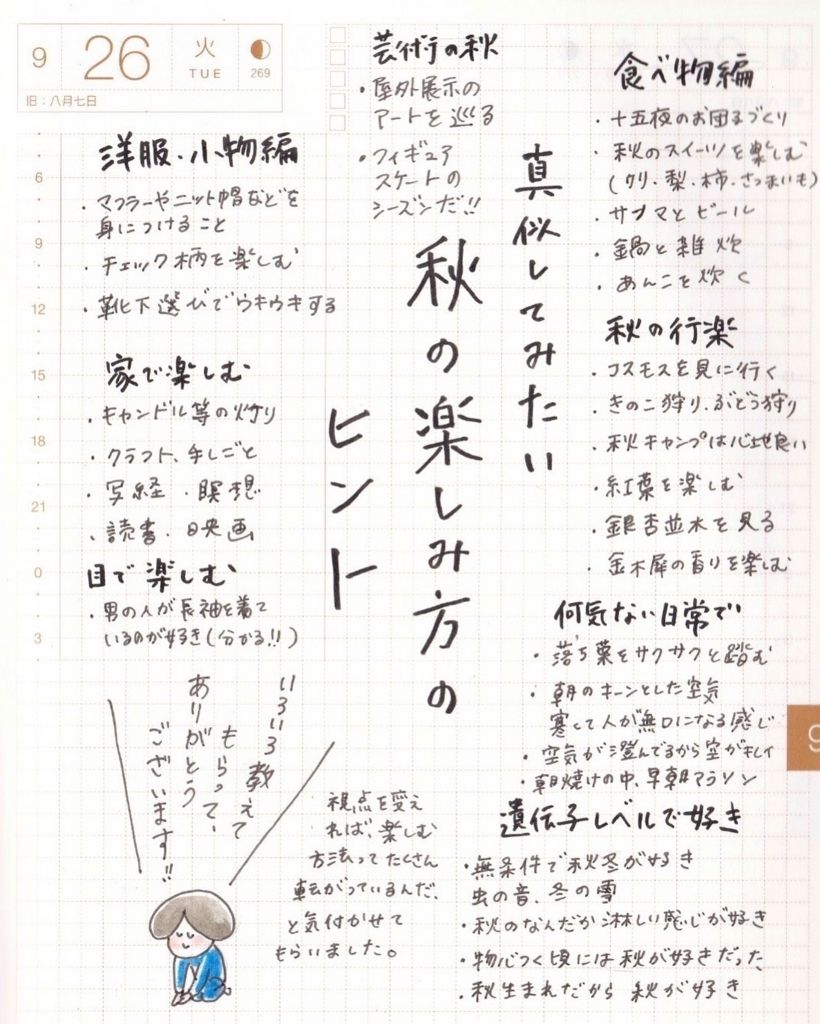 9
26
火
TUE
269
旧：八月七日
6
9
12
15
18
21
0
3
真似してみたい
秋の楽しみ方の
ヒント
食べ物編
・十五夜のお団子づくり
・秋のスイーツを楽しむ
(クリ・梨・柿・さつまいも)
・サンマとビール
・鍋と雑炊
・あんこを炊く
秋の行楽
・コスモスを見に行く
・きのこ狩り、ぶどう狩り
・秋キャンプは心地良い
・紅葉を楽しむ
・銀杏並木を見る
・金木犀の香りを楽しむ
何気ない日常で
・落ち葉をサクサクと踏む
・朝のキーンとした空気
寒くて人が無口になる感じ
・空気が澄んでるから空がキレイ
・朝焼けの中、早朝マラソン
遺伝子レベルで好き
・無条件で秋冬が好き
虫の音、冬の雪
・秋のなんだか淋しい感じが好き
・物心つく頃には秋が好きだった
・秋生まれだから 秋が好き
芸術の秋
・屋外展示の
アートを巡る
・フィギュア
スケートの
シーズンだ!!
洋服・小物編
・マフラーやニット帽などを
身につけること
・チェック柄を楽しむ
・靴下選びでウキウキする
家で楽しむ
・キャンドル等の灯り
・クラフト、手しごと
・写経・瞑想
・読書・映画
目で楽しむ
・男の人が長袖を着て
いるのが好き(分かる!!)
いろいろ教えて
もらって、
ありがとう
ございます!!
視点を変え
れば、楽しむ
方法ってたくさん
転がっているんだ、
と気付かせて
もらいました。
9